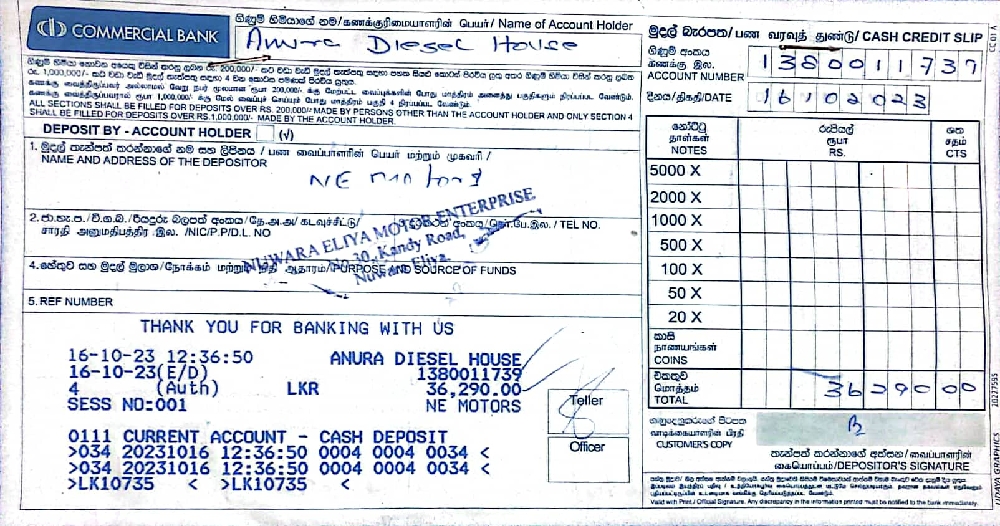 COMMERCIAL BANK
ගිණුම් හිමියාගේ නම/கணக்குரிமையாளரின் பெயர்/ Name of Account Holder
Anura Diesel House
ALL SECTIONS SHALL BE FILLED FOR DEPOSITS OVER RS. 200,000/- MADE BY PERSONS OTHER THAN THE ACCOUNT HOLDER AND ONLY SECTION 4
SHALL BE FILLED FOR DEPOSITS OVER RS.1,000,000/- MADE BY THE ACCOUNT HOLDER.
DEPOSIT BY - ACCOUNT HOLDER (√)
1. මුදල් තැන්පත් කරන්නාගේ නම සහ ලිපිනය / பண வைப்பாளரின் பெயர் மற்றும் முகவரி /
NAME AND ADDRESS OF THE DEPOSITOR
NE motors
சாரதி அனுமதிபத்திர இல. /NIC/P.P/D.L. NO
/ TEL NO.
NUWARA ELIYA MOTOR ENTERPRISE
NO.30, Kandy Road,
Nuwara Eliya.
4. හේතුව සහ මුදල් මූලාශ්‍ර/நோக்கம் மற்றும் நிதி ஆதாரம்/PURPOSE AND SOURCE OF FUNDS
5. REF NUMBER
THANK YOU FOR BANKING WITH US
16-10-23 12:36:50 ANURA DIESEL HOUSE
16-10-23(E/D) 1380011739
4 (Auth) LKR 36,290.00
SESS NO:001 NE MOTORS
0111 CURRENT ACCOUNT - CASH DEPOSIT
>034 20231016 12:36:50 0004 0004 0034 <
>034 20231016 12:36:50 0004 0004 0034 <
>LK10735 < >LK10735 <
Teller
Officer
මුදල් බැරපත/ பண வரவுத் துண்டு/ CASH CREDIT SLIP
ගිණුම් අංකය
கணக்கு இல.
ACCOUNT NUMBER 1380011739
දිනය/திகதி/DATE 16102023
නෝට්ටු
தாள்கள்
NOTES
රුපියල්
ரூபா
RS.
ශත
சதம்
CTS
5000 X
2000 X
1000 X
500 X
100 X
50 X
20 X
කාසි
நாணயங்கள்
COINS
එකතුව
மொத்தம்
TOTAL 3629000
ගනුදෙනුකරුගේ පිටපත
வாடிக்கையாளரின் பிரதி
CUSTOMER'S COPY
තැන්පත් කරන්නාගේ අත්සන/வைப்பாளரின்
கையொப்பம்/DEPOSITOR'S SIGNATURE
Valid with Print / Official Signature. Any discrepancy in the information printed must be notified to the bank immediately.
CC 01 A